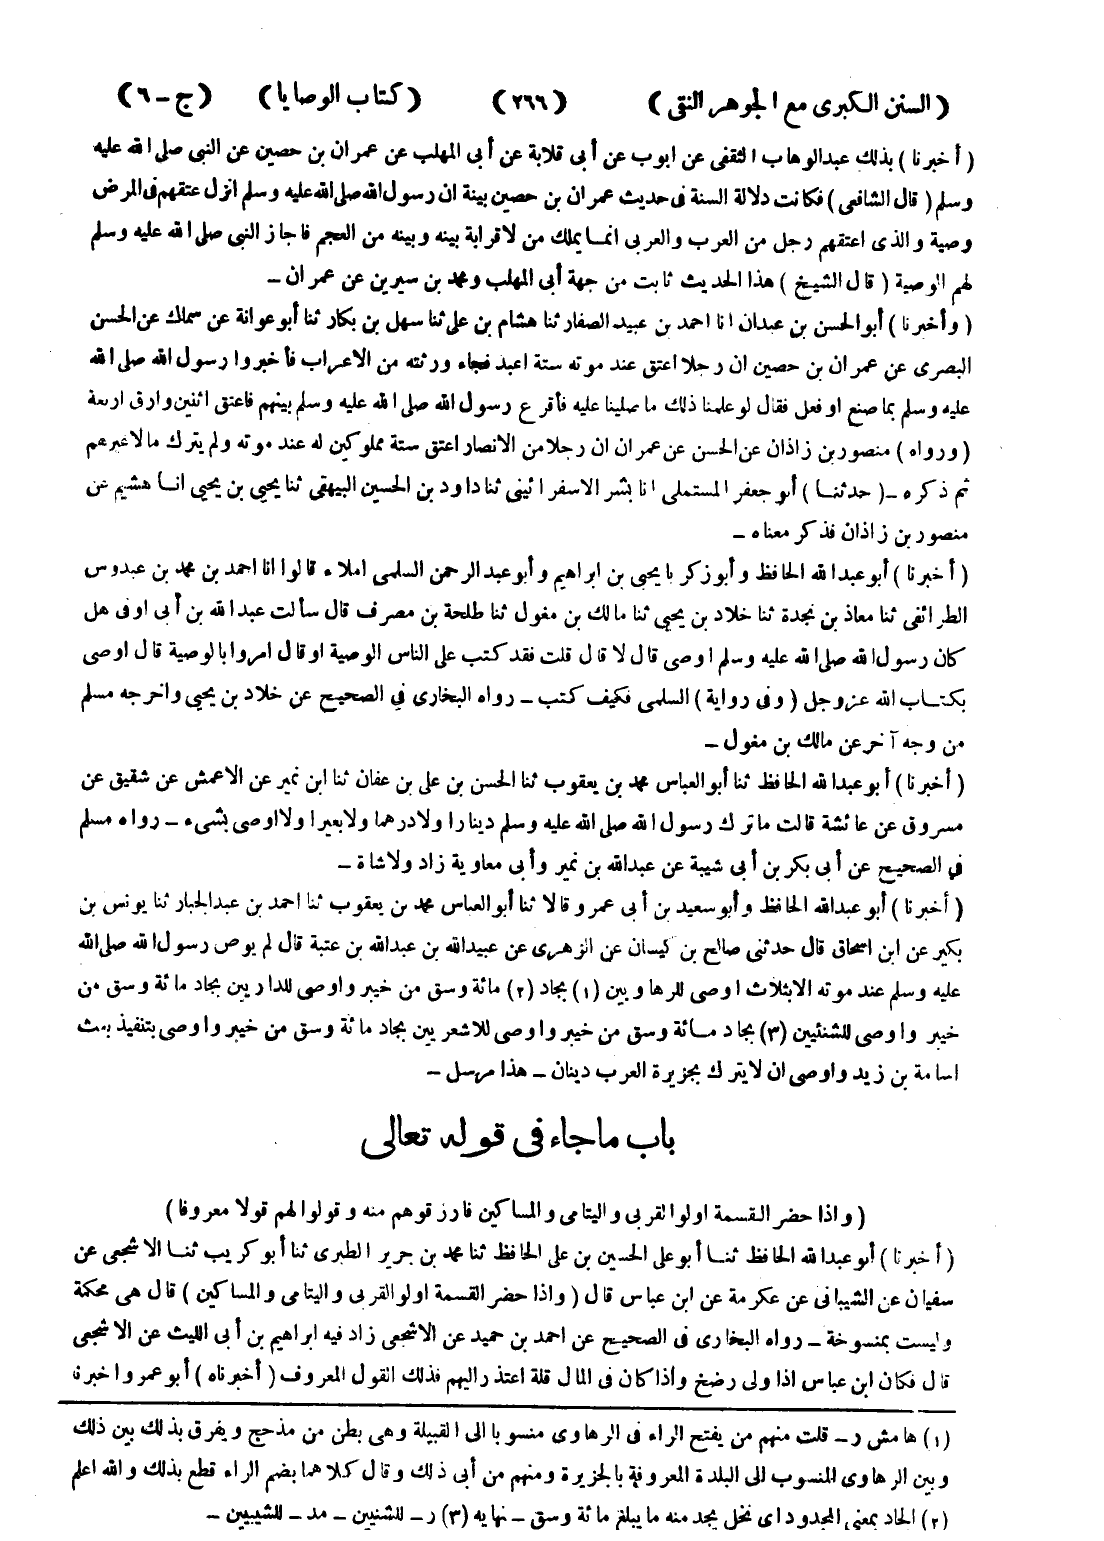 ( السنن الكبرى مع الجوهر النقى ) ( ٢٦٦ ) ( كتاب الوصايا ) ( ج ـ ٦ )
( أخبرنا ) بذلك عبدالوهاب الثقفى عن ايوب عن أبى قلابة عن أبى المهلب عن عمران بن حصين عن النبى صلى الله عليه
وسلم ( قال الشافعى ) فكانت دلالة السنة فى حديث عمران بن حصين بينة ان رسول الله صلى الله عليه وسلم انزل عتقهم فى المرض
وصية والذى اعتقهم رجل من العرب والعربى انما يملك من لاقرابة بينه وبينه من العجم فاجاز النبى صلى الله عليه وسلم
لهم الوصية ( قال الشيخ ) هذا الحديث ثابت من جهة أبى المهلب ومحمد بن سيرين عن عمران ـ
( وأخبرنا ) أبوالحسن بن عبدان انا احمد بن عبيد الصفار ثنا هشام بن على ثنا سهل بن بكار ثنا أبوعوانة عن سماك عن الحسن
البصرى عن عمران بن حصين ان رجلا اعتق عند موته ستة اعبد فجاء ورثته من الاعراب فأخبروا رسول الله صلى الله
عليه وسلم بما صنع او فعل فقال لو علمنا ذلك ما صلينا عليه فأقرع رسول الله صلى الله عليه وسلم بينهم فاعتق اثنين وارق اربعة
( ورواه ) منصور بن زاذان عن الحسن عن عمران ان رجلا من الانصار اعتق ستة مملوكين له عند موته ولم يترك مالا غيرهم
ثم ذكره ـ ( حدثنا ) أبوجعفر المستملى انا بشر الاسفرائينى ثنا داود بن الحسين البيهقى ثنا يحيى بن يحيى انا هشيم عن
منصور بن زاذان فذكر معناه ـ
( أخبرنا ) أبوعبدالله الحافظ وأبوزكريا يحيى بن ابراهيم وأبوعبد الرحمن السلمى املاء قالوا انا احمد بن محمد بن عبدوس
الطرائفى ثنا معاذ بن نجدة ثنا خلاد بن يحيى ثنا مالك بن مغول ثنا طلحة بن مصرف قال سألت عبدالله بن أبى اوفى هل
كان رسول الله صلى الله عليه وسلم اوصى قال لا قال قلت فقد كتب على الناس الوصية او قال امروا بالوصية قال اوصى
بكتاب الله عزوجل ( وفى رواية ) السلمى فكيف كتب ـ رواه البخارى في الصحيح عن خلاد بن يحيى واخرجه مسلم
من وجه آخر عن مالك بن مغول ـ
( أخبرنا ) أبوعبدالله الحافظ ثنا أبوالعباس محمد بن يعقوب ثنا الحسن بن على بن عفان ثنا ابن نمير عن الاعمش عن شقيق عن
مسروق عن عائشة قالت ماترك رسول الله صلى الله عليه وسلم دينارا ولادرهما ولابعيرا ولااوصى بشىء ـ رواه مسلم
في الصحيح عن أبى بكر بن أبى شيبة عن عبدالله بن نمير وأبى معاوية زاد ولاشاة ـ
( أخبرنا ) أبو عبدالله الحافظ وأبوسعيد بن أبى عمرو قالا ثنا أبوالعباس محمد بن يعقوب ثنا احمد بن عبدالجبار ثنا يونس بن
بكير عن ابن اسحاق قال حدثنى صالح بن كيسان عن الزهرى عن عبيدالله بن عبدالله بن عتبة قال لم يوص رسول الله صلى الله
عليه وسلم عند موته الابثلاث اوصى للرهاويين (١) بجاد (٢) مائة وسق من خيبر واوصى للداريين بجاد مائة وسق من
خيبر واوصى للشنئيين (٣) بجاد مائة وسق من خيبر واوصى للاشعريين بجاد مائة وسق من خيبر واوصى بتنفيذ بعث
اسامة بن زيد واوصى ان لايترك بجزيرة العرب دينان ـ هذا مرسل ـ
باب ماجاء فى قوله تعالى
( واذا حضر القسمة اولوا القربى واليتامى والمساكين فارزقوهم منه وقولوا لهم قولا معروفا )
( أخبرنا ) أبوعبدالله الحافظ ثنا أبوعلى الحسين بن على الحافظ ثنا محمد بن جرير الطبرى ثنا أبوكريب ثنا الاشجعى عن
سفيان عن الشيبانى عن عكرمة عن ابن عباس قال ( واذا حضر القسمة اولوا القربى واليتامى والمساكين ) قال هى محكمة
وليست بمنسوخة ـ رواه البخارى فى الصحيح عن احمد بن حميد عن الاشجعى زاد فيه ابراهيم بن أبى الليث عن الاشجعى
قال فكان ابن عباس اذا ولى رضخ واذا كان فى المال قلة اعتذر اليهم فذلك القول المعروف ( أخبرناه ) أبوعمرو اخبرنا
(١) هامش ر ـ قلت منهم من يفتح الراء فى الرهاوى منسوبا الى القبيلة وهى بطن من مذحج ويفرق بذلك بين ذلك
وبين الرهاوى المنسوب الى البلدة المعروفة بالجزيرة ومنهم من أبى ذلك وقال كلاهما بضم الراء قطع بذلك والله اعلم
(٢) الجاد بمعنى المجدود اى نخل يجد منه ما يبلغ مائة وسق ـ نهايه (٣) ر ـ للشنيين ـ مد ـ للشيبين ـ